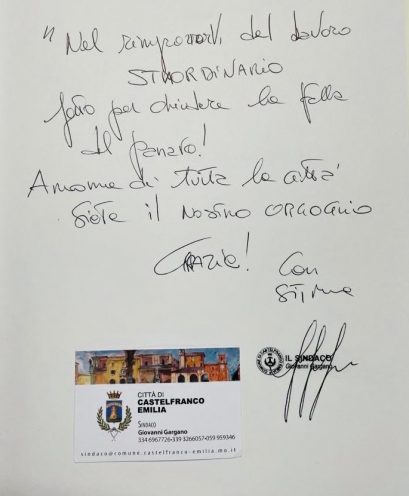 " Nel ringraziarvi del lavoro
STRAORDINARIO
fatto per chiudere la falla
del Panaro!
A nome di tutta la città
siete il nostro ORGOGLIO
GRAZIE! Con
stima
IL SINDACO
Giovanni Gargano
CITTÀ DI
CASTELFRANCO
EMILIA
SINDACO
Giovanni Gargano
334 6967726-339 3266057-059 959346
sindaco@comune.castelfranco-emilia.mo.it